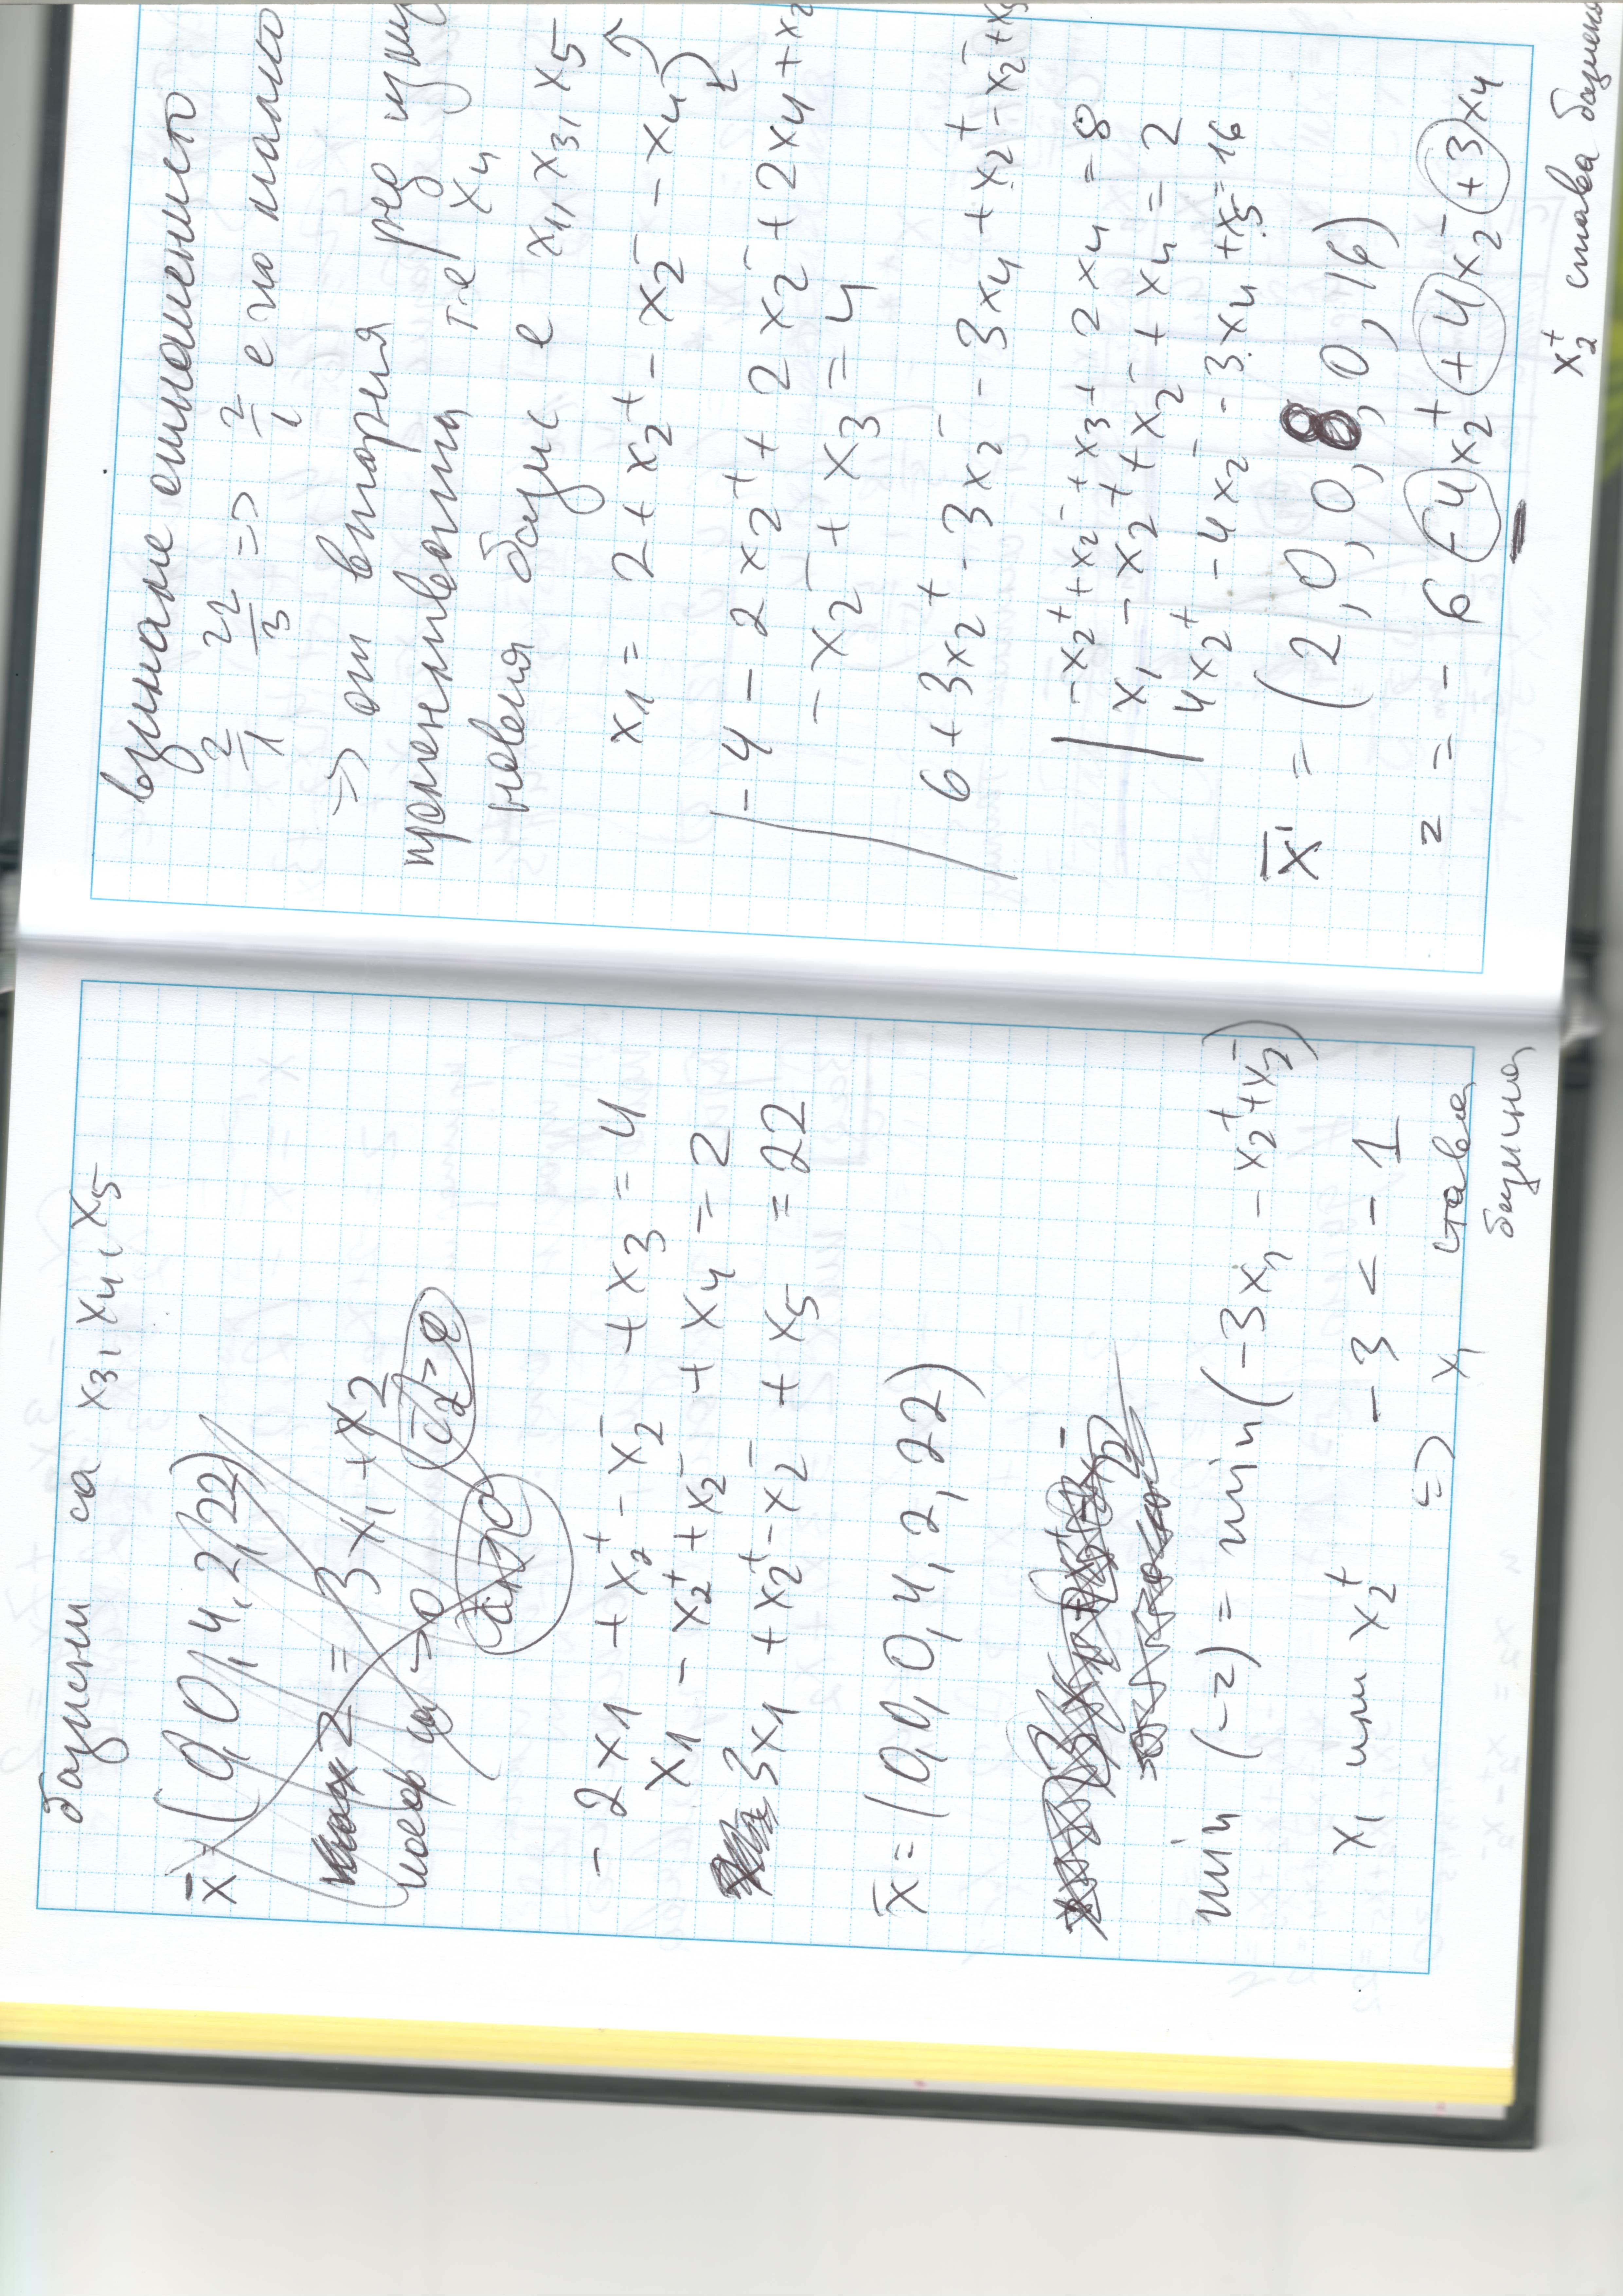 базисни са x3, x4, x5
x̄ = (0,0,4,2,22)
max z = 3x1 + x2
-2x1 + x2⁺ - x2⁻ + x3 = 4
x1 - x2⁺ + x2⁻ + x4 = 2
3x1 + x2⁺ - x2⁻ + x5 = 22
x̄ = (0,0,0,4,2,22)
min (-z) = min (-3x1 - x2⁺ + x2⁻)
x1 или x2⁺ -3 < -1
=> x1 става
базисна
взимаме отношението
2/1 22/3 => 2/1 е по-малко
=> от втория ред
променливата т.е x4
новия базис е x1, x3, x5
x1 = 2 + x2⁺ - x2⁻ - x4
-4 - 2x2⁺ + 2x2⁻ + 2x4 + x2
- x2⁻ + x3 = 4
6 + 3x2⁺ - 3x2⁻ - 3x4 + x2⁺ - x2⁻ + x5
-x2⁺ + x2⁻ + x3 + 2x4 = 8
x1 - x2⁺ + x2⁻ + x4 = 2
4x2⁺ - 4x2⁻ - 3x4 + x5 = 16
x̄' = (2,0,0,8,0,16)
z = -6 -4x2⁺ +4x2⁻ +3x4
x2⁺ става базисна